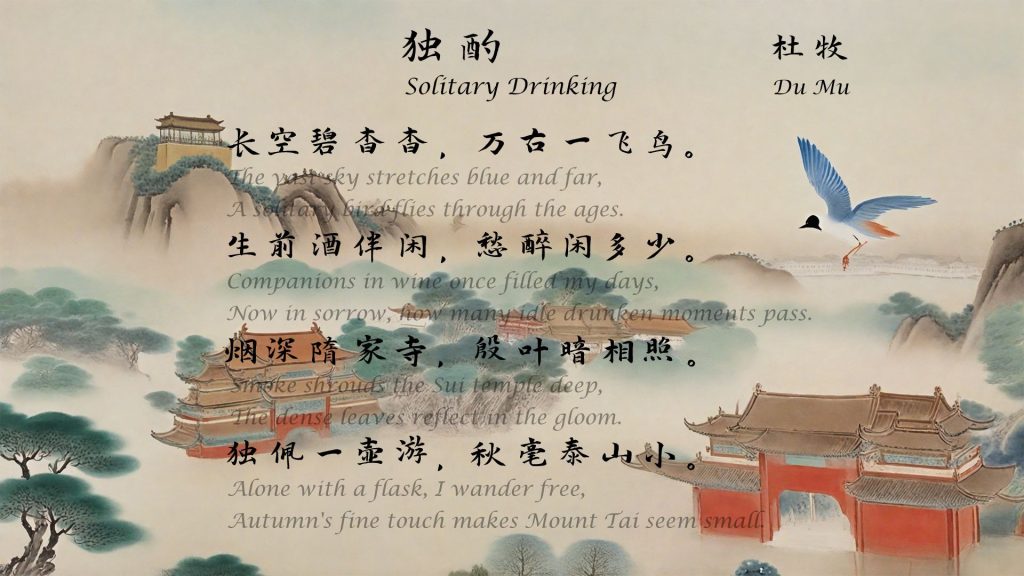 独酌
Solitary Drinking
杜牧
Du Mu
长空碧杳杳，万古一飞鸟。
The vast sky stretches blue and far,
A solitary bird flies through the ages.
生前酒伴闲，愁醉闲多少。
Companions in wine once filled my days,
Now in sorrow, how many idle drunken moments pass.
烟深隋家寺，殷叶暗相照。
Smoke shrouds the Sui temple deep,
The dense leaves reflect in the gloom.
独佩一壶游，秋毫泰山小。
Alone with a flask, I wander free,
Autumn's fine touch makes Mount Tai seem small.